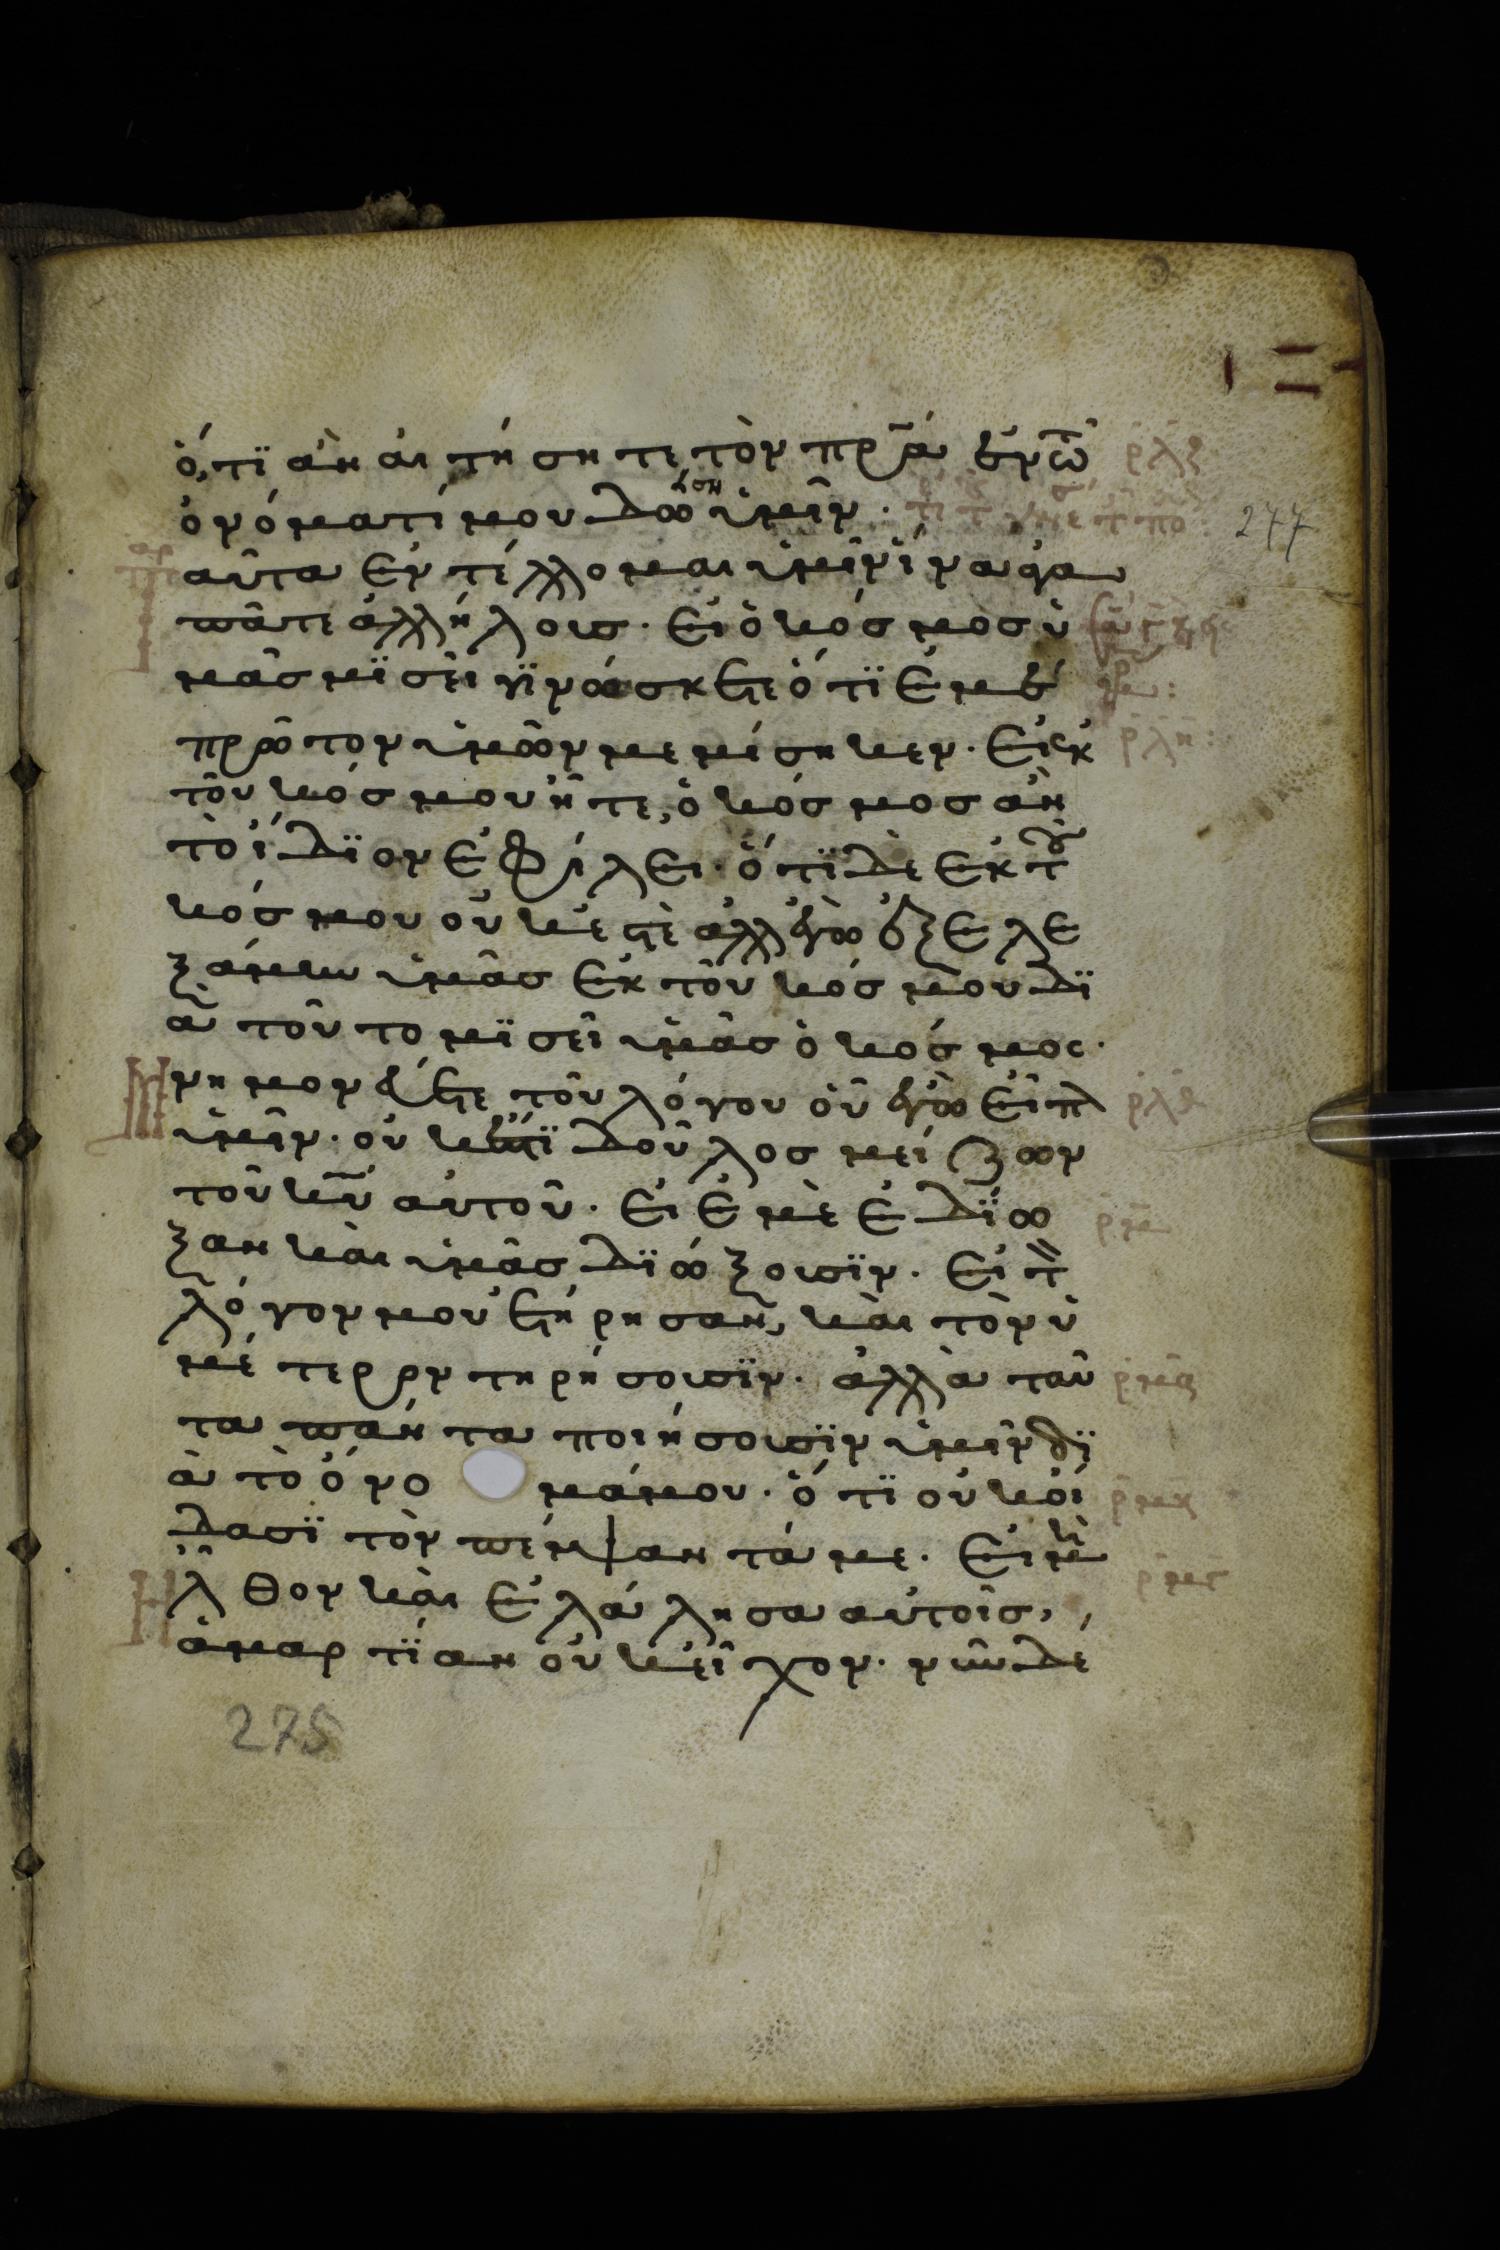 ὅ,τϊ ἂν αἰτήσητε τὸν πρ̅α ἐντῶ
ὀνόματί μου δώσηὑμῖν·
αῦτα ἐντέλλομαι ὑμῖν ἵνα ἀγα
πᾶτε ἀλλήλοις· εἰ ὁ κόσμος ὑ
μᾶς μϊσεῖ γϊνώσκετε ὅτϊ ἐμὲ
πρῶτον ὑμῶν μεμίσηκεν· εἰ ἐκ
τοῦ κόσμου ἦτε, ὁ κόσμος ἂν
τὸ ἴδϊον ἐφίλει· ὅτϊ δὲ ἐκ τοῦ
κόσμου οὐκ ἐστὲ ἀλλ' ἐγὼ ἐξελε
ξάμην ὑμᾶς ἐκ τοῦ κόσμου δϊ
ὰ τοῦτο μϊσεῖ ὑμᾶς ὁ κόσμος·
Μνημονεύετε τοῦ λόγου οὗ ἐγὼ εἶπον
ὑμῖν· οὐκ ἔστϊ δοῦλος μείζων
τοῦ κυ̅ αὐτοῦ· εἰ ἐμὲ ἐδϊώ
ξαν καὶ ὑμᾶς δϊώξουσϊν· εἰ τὸν
λόγον μου ἐτήρησαν, καὶ τὸν ὑ
μέτερον τηρήσουσϊν· ἀλλὰ ταῦ
τα πάντα ποιήσουσϊν ὑμῖν δϊ
ὰ τὸ ὄνομά μου· ὅτϊ οὐκ οἴ
δασϊ τὸν πέμψαντά με· εἰ μὴ
Ἦλθον καὶ ἐλάλησα αὐτοῖς,
ἁμαρτίαν οὐκ εἶχον· νῦν δὲ
ρλζ
ρλη
ρλθ
ρμ
ρμα
277
275